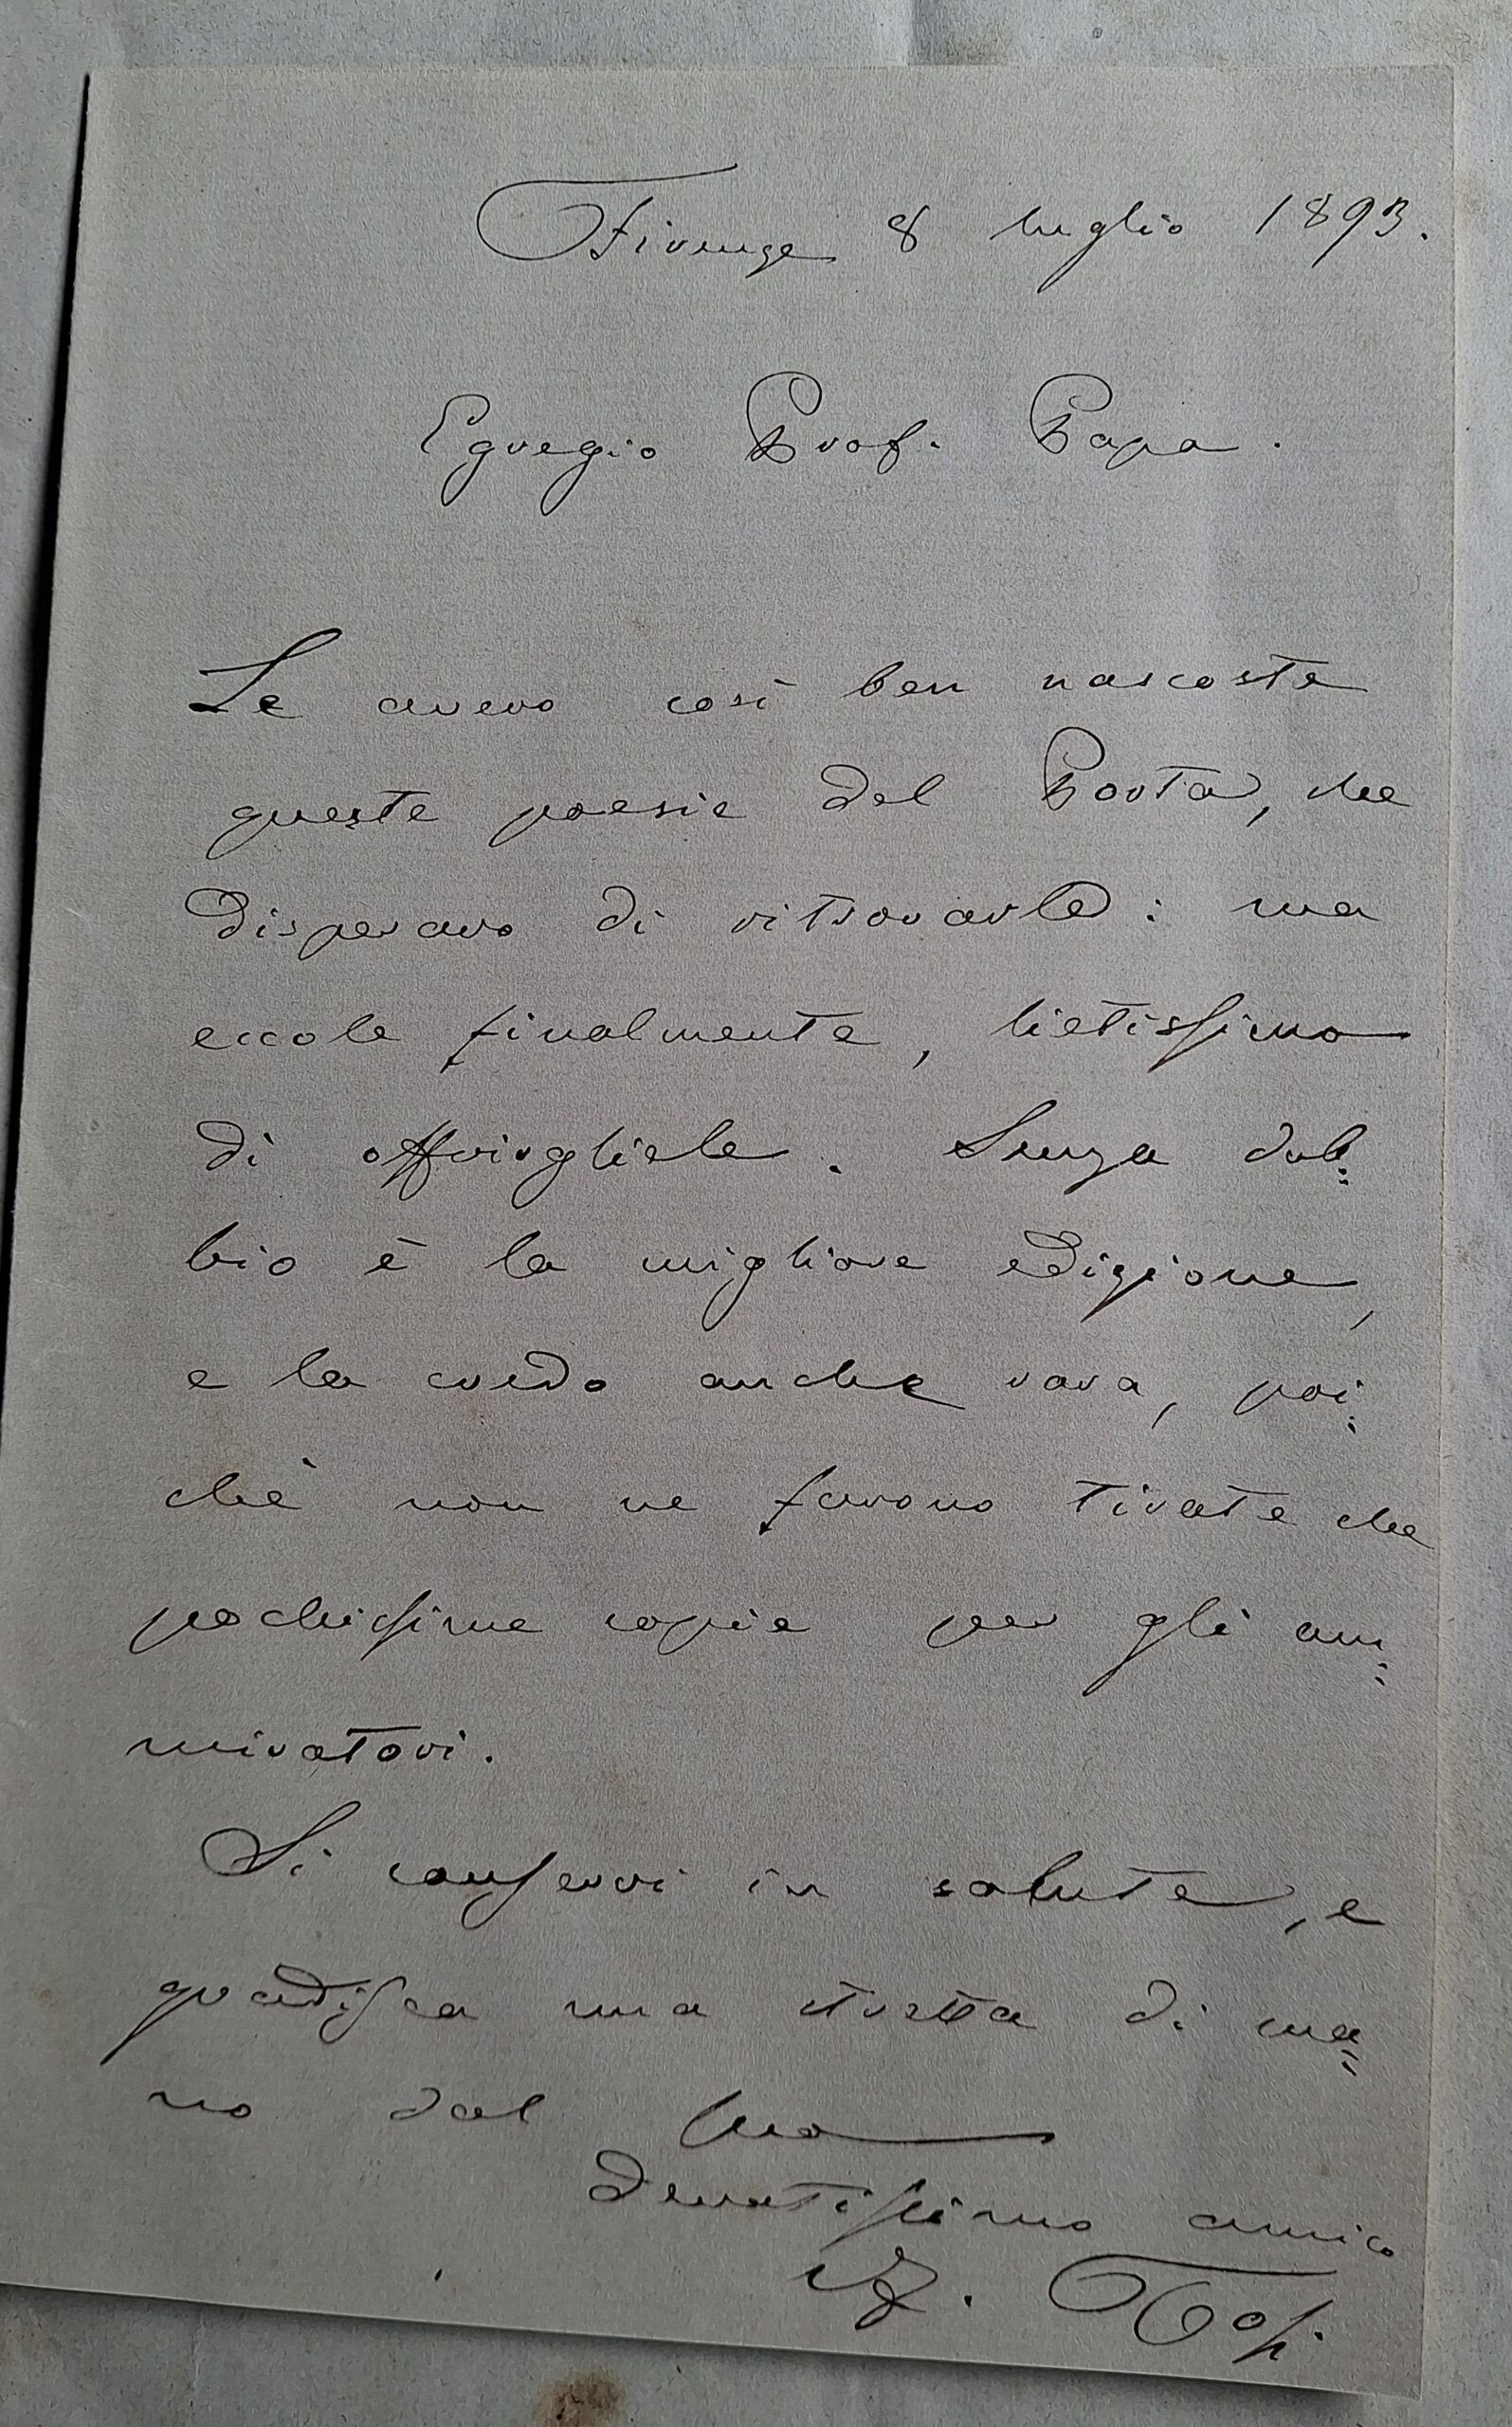 Firenze 8 luglio 1893.
Egregio Prof. Papa.
Le avevo così ben nascoste
queste poesie del Porta, che
disperavo di ritrovarle: ma
eccole finalmente, lietissimo
di offrirgliele. Senza dub=
bio è la migliore edizione,
e la credo anche rara, poi=
chè non ne furono tirate che
pochissime copie per gli am=
miratori.
Si conservi in salute, e
gradisca una stretta di ma=
no dal suo
devotissimo amico
Tosi